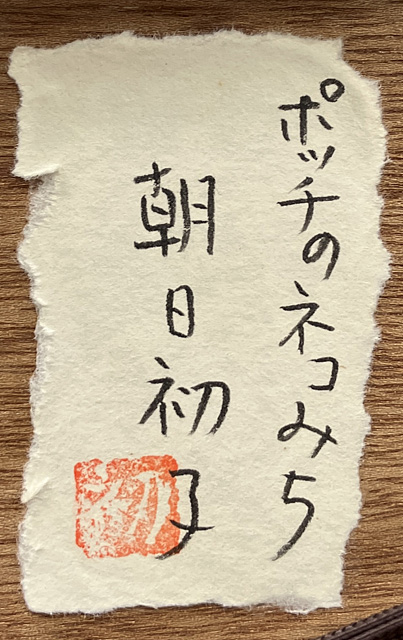 ポッチのネコみち
朝日初子
初